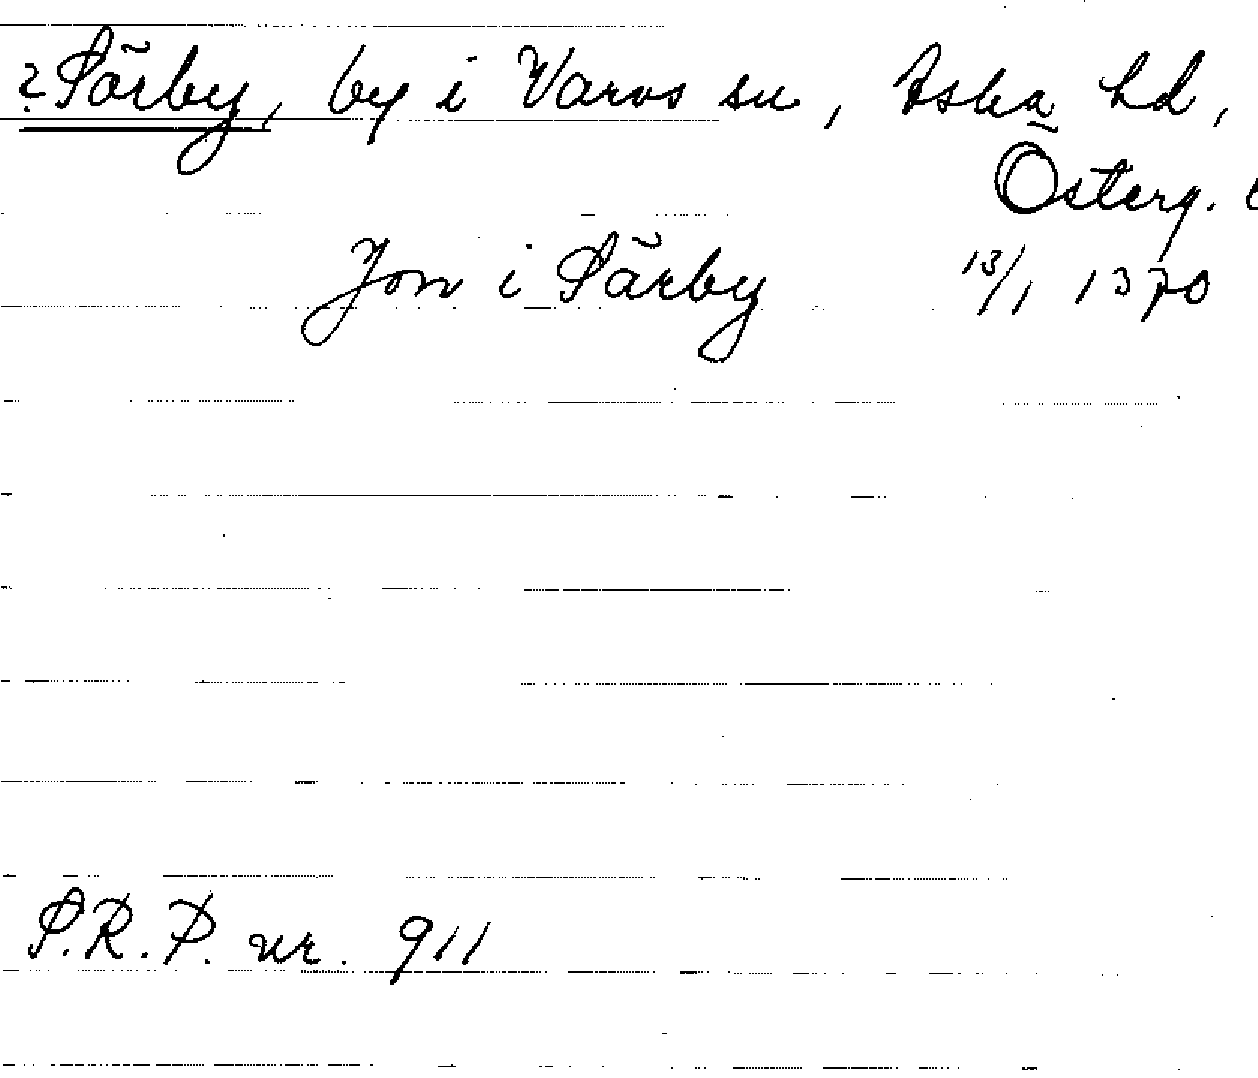 ? Särby, by i Varvs sn, Aska hd,
Österg.
Jon i Särby 13/1 1370
S.R.P. nr. 911